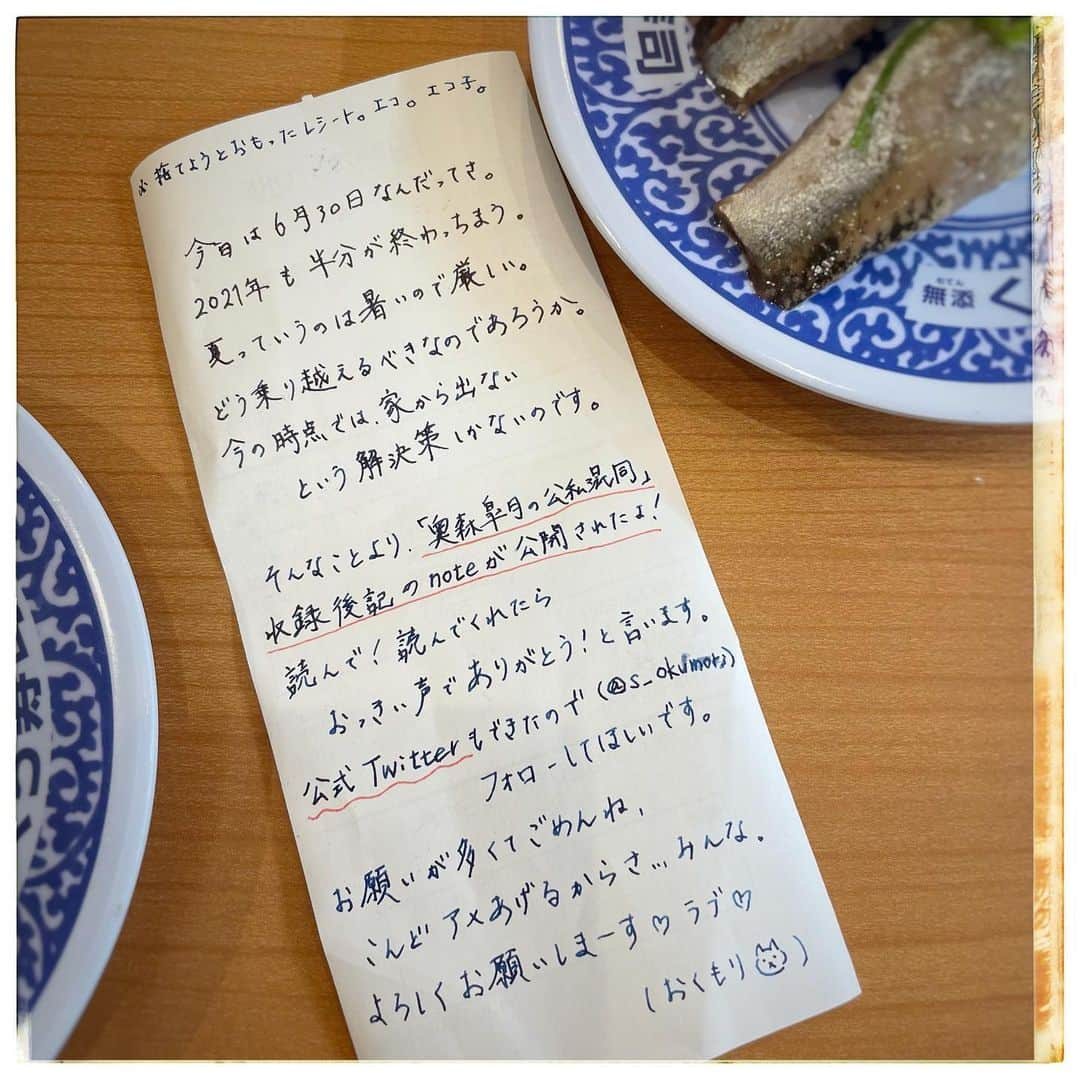 ※捨てようとおもったレシート。エコ。エコ子。
今日は6月30日なんだってさ。
2021年も半分が終わっちまう。
夏っていうのは暑いので厳しい。
どう乗り越えるべきなのであろうか。
今の時点では、家から出ない
という解決策しかないのです。
そんなことより、「奥森皐月の公私混同」
収録後記のnoteが公開されたよ!
読んで!読んでくれたら
おっきい声でありがとう!と言います。
公式Twitterもできたので(@s_okumori)
フォローしてほしいです。
お願いが多くてごめんね、
こんどアメあげるからさ...みんな。
よろしくお願いしまーす♡ラブ♡
(おくもり)
寿司
むてん
無添く